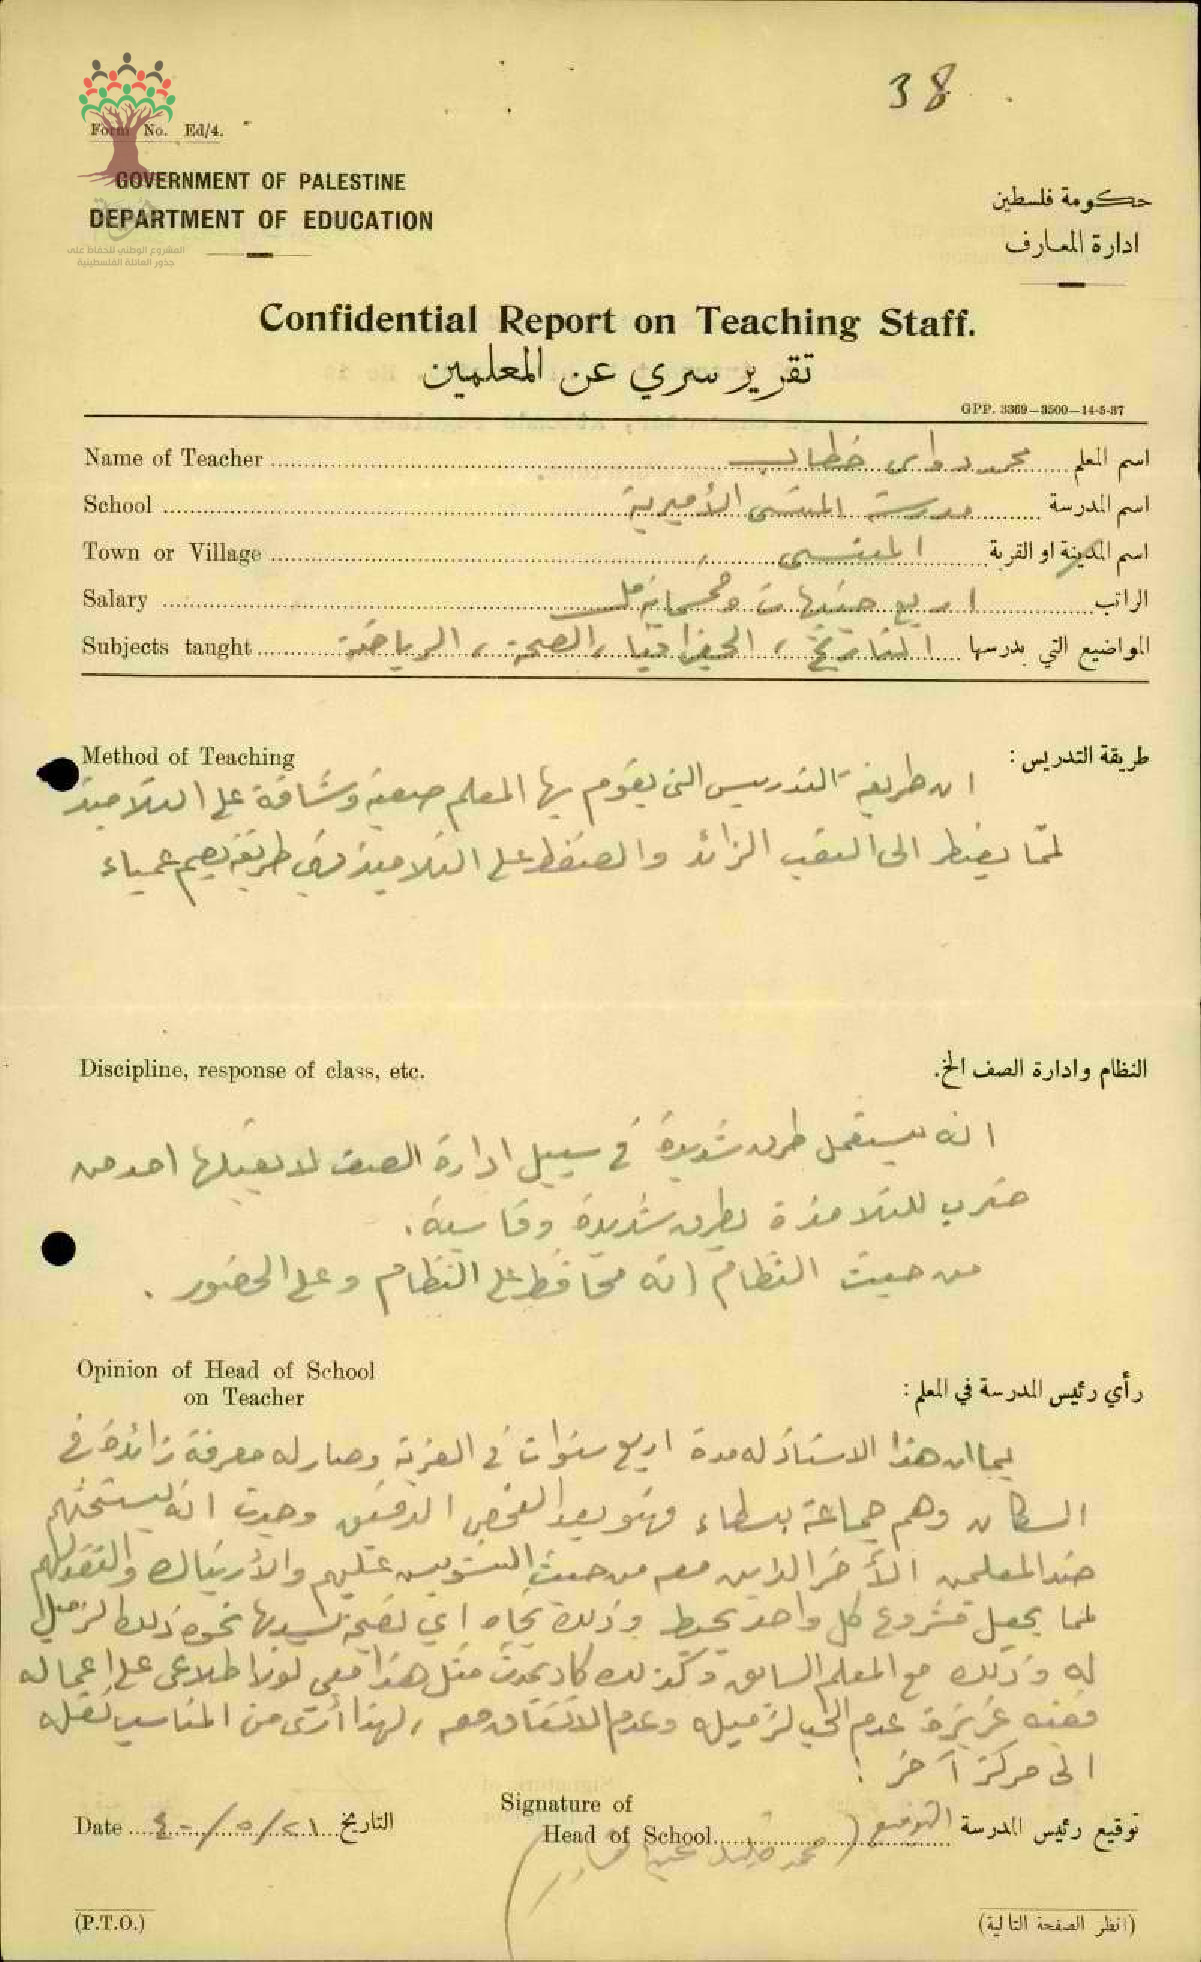 38
Form No. Ed/4.
GOVERNMENT OF PALESTINE
DEPARTMENT OF EDUCATION
المشروع الوطني للحفاظ على
جذور العائلة الفلسطينية
حكومة فلسطين
ادارة المعارف
Confidential Report on Teaching Staff.
تقرير سري عن المعلمين
GPP. 3369—3500—14-5-37
Name of Teacher محمد خطاب اسم المعلم
School مدرسة الأميرية اسم المدرسة
Town or Village اسم المدينة او القرية
Salary اربع جنيهات وخمسماية مل الراتب
Subjects taught التاريخ، الجغرافيا، الصحة، الرياضة المواضيع التي يدرسها
Method of Teaching طريقة التدريس:
ان طريقة التدريس التي يقوم بها المعلم صعبة وشاقة على التلاميذ
لمّا يضطر الى التعب الزائد والضغط على التلاميذ طريقة عمياء
Discipline, response of class, etc. النظام وادارة الصف الخ.
انه يستعمل طرق شديدة في سبيل ادارة الصف لا يقبلها احد من
ضرب للتلامذة بطرق شديدة وقاسية.
من حيث النظام انه محافظ على النظام وعلى الحضور.
Opinion of Head of School
on Teacher
رأي رئيس المدرسة في المعلم:
بما ان هذا الاستاذ له مدة اربع سنوات في القرية وصار له معرفة زائدة في
السكان وهم جماعة بسطاء فهو بعد الفحص الدقيق وجدت انه
ضد المعلمين الأخر الذين معه من حيث التشويس عليهم
لما يجعل مشروع كل واحد يحبط وذلك تجاه اي نصيحة يسديها نحوه ذلك الزميل
له وذلك مع المعلم السابق وكذلك كاد يحدث مثل هذا معي لولا اطلاعي على اعماله
غريزة عدم الحب لزميله وعدم الاتفاق معه، لهذا أرى من المناسب نقله
الى مركز آخر.
Signature of
Head of School (التوقيع) محمد توقيع رئيس المدرسة
Date ٢١/٥/٤٠ التاريخ
(P.T.O.)
(انظر الصفحة التالية)